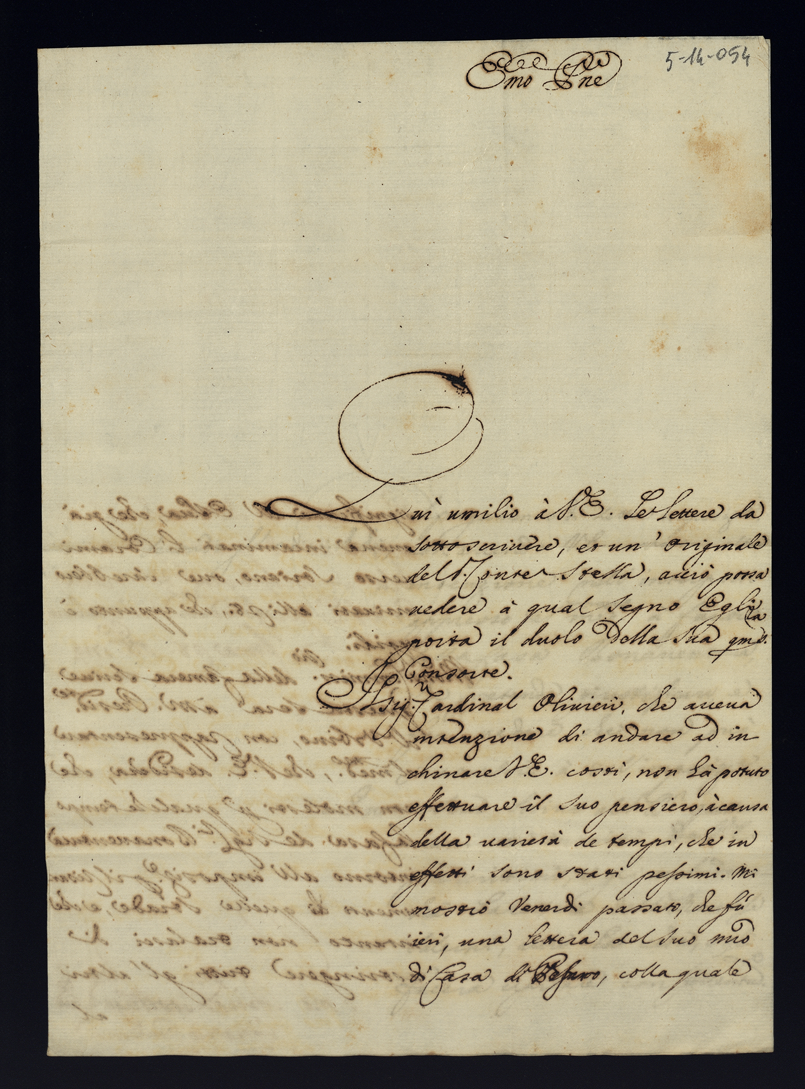 5-14-054
Emo Pne
Qui umilio à V. E. Le Lettere da
sottoscrivere, et un' originale
del S. Conte Stella, acciò possa
vedere à qual segno Egli
porta il duolo della sua qm.
Consorte.
Il Sig.r Cardinal Olivieri, che aveva
intenzione di andare ad in
chinare V. E. costì, non hà potuto
effettuare il suo pensiero, à causa
della varietà de tempi, che in
effetti sono stati pessimi. Mi
mostrò Venerdì passato, che fù
ieri, una lettera del suo mro
di Casa di Pesaro, colla quale